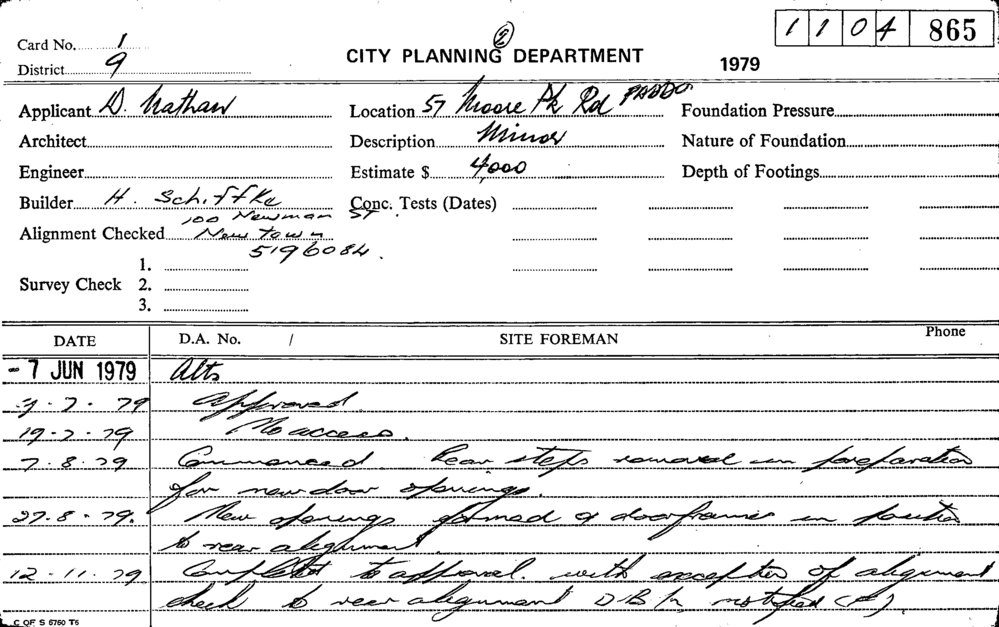 Card No. 1
District 9
② CITY PLANNING DEPARTMENT
1979
1 1 0 4 865
Applicant D. Nathan Location 57 Moore Pk Rd PADDO Foundation Pressure
Architect Description Minor Nature of Foundation
Engineer Estimate $ 4,000 Depth of Footings
Builder H. Schiffke Conc. Tests (Dates)
100 Newman St.
Alignment Checked Newtown
5196084.
1.
Survey Check 2.
3.
DATE D.A. No. / SITE FOREMAN Phone
- 7 JUN 1979 Alts
3-7-79 Approved.
19-7-79 No access.
7.8.79 Commenced Rear steps removed in preparation
for new door openings.
27.8.79. New openings formed & doorframes in position
to rear alignment.
12.11.79 Completed to approval. with exception of alignment
check to rear alignment D.B.M. notified
C OF S 5760 T5